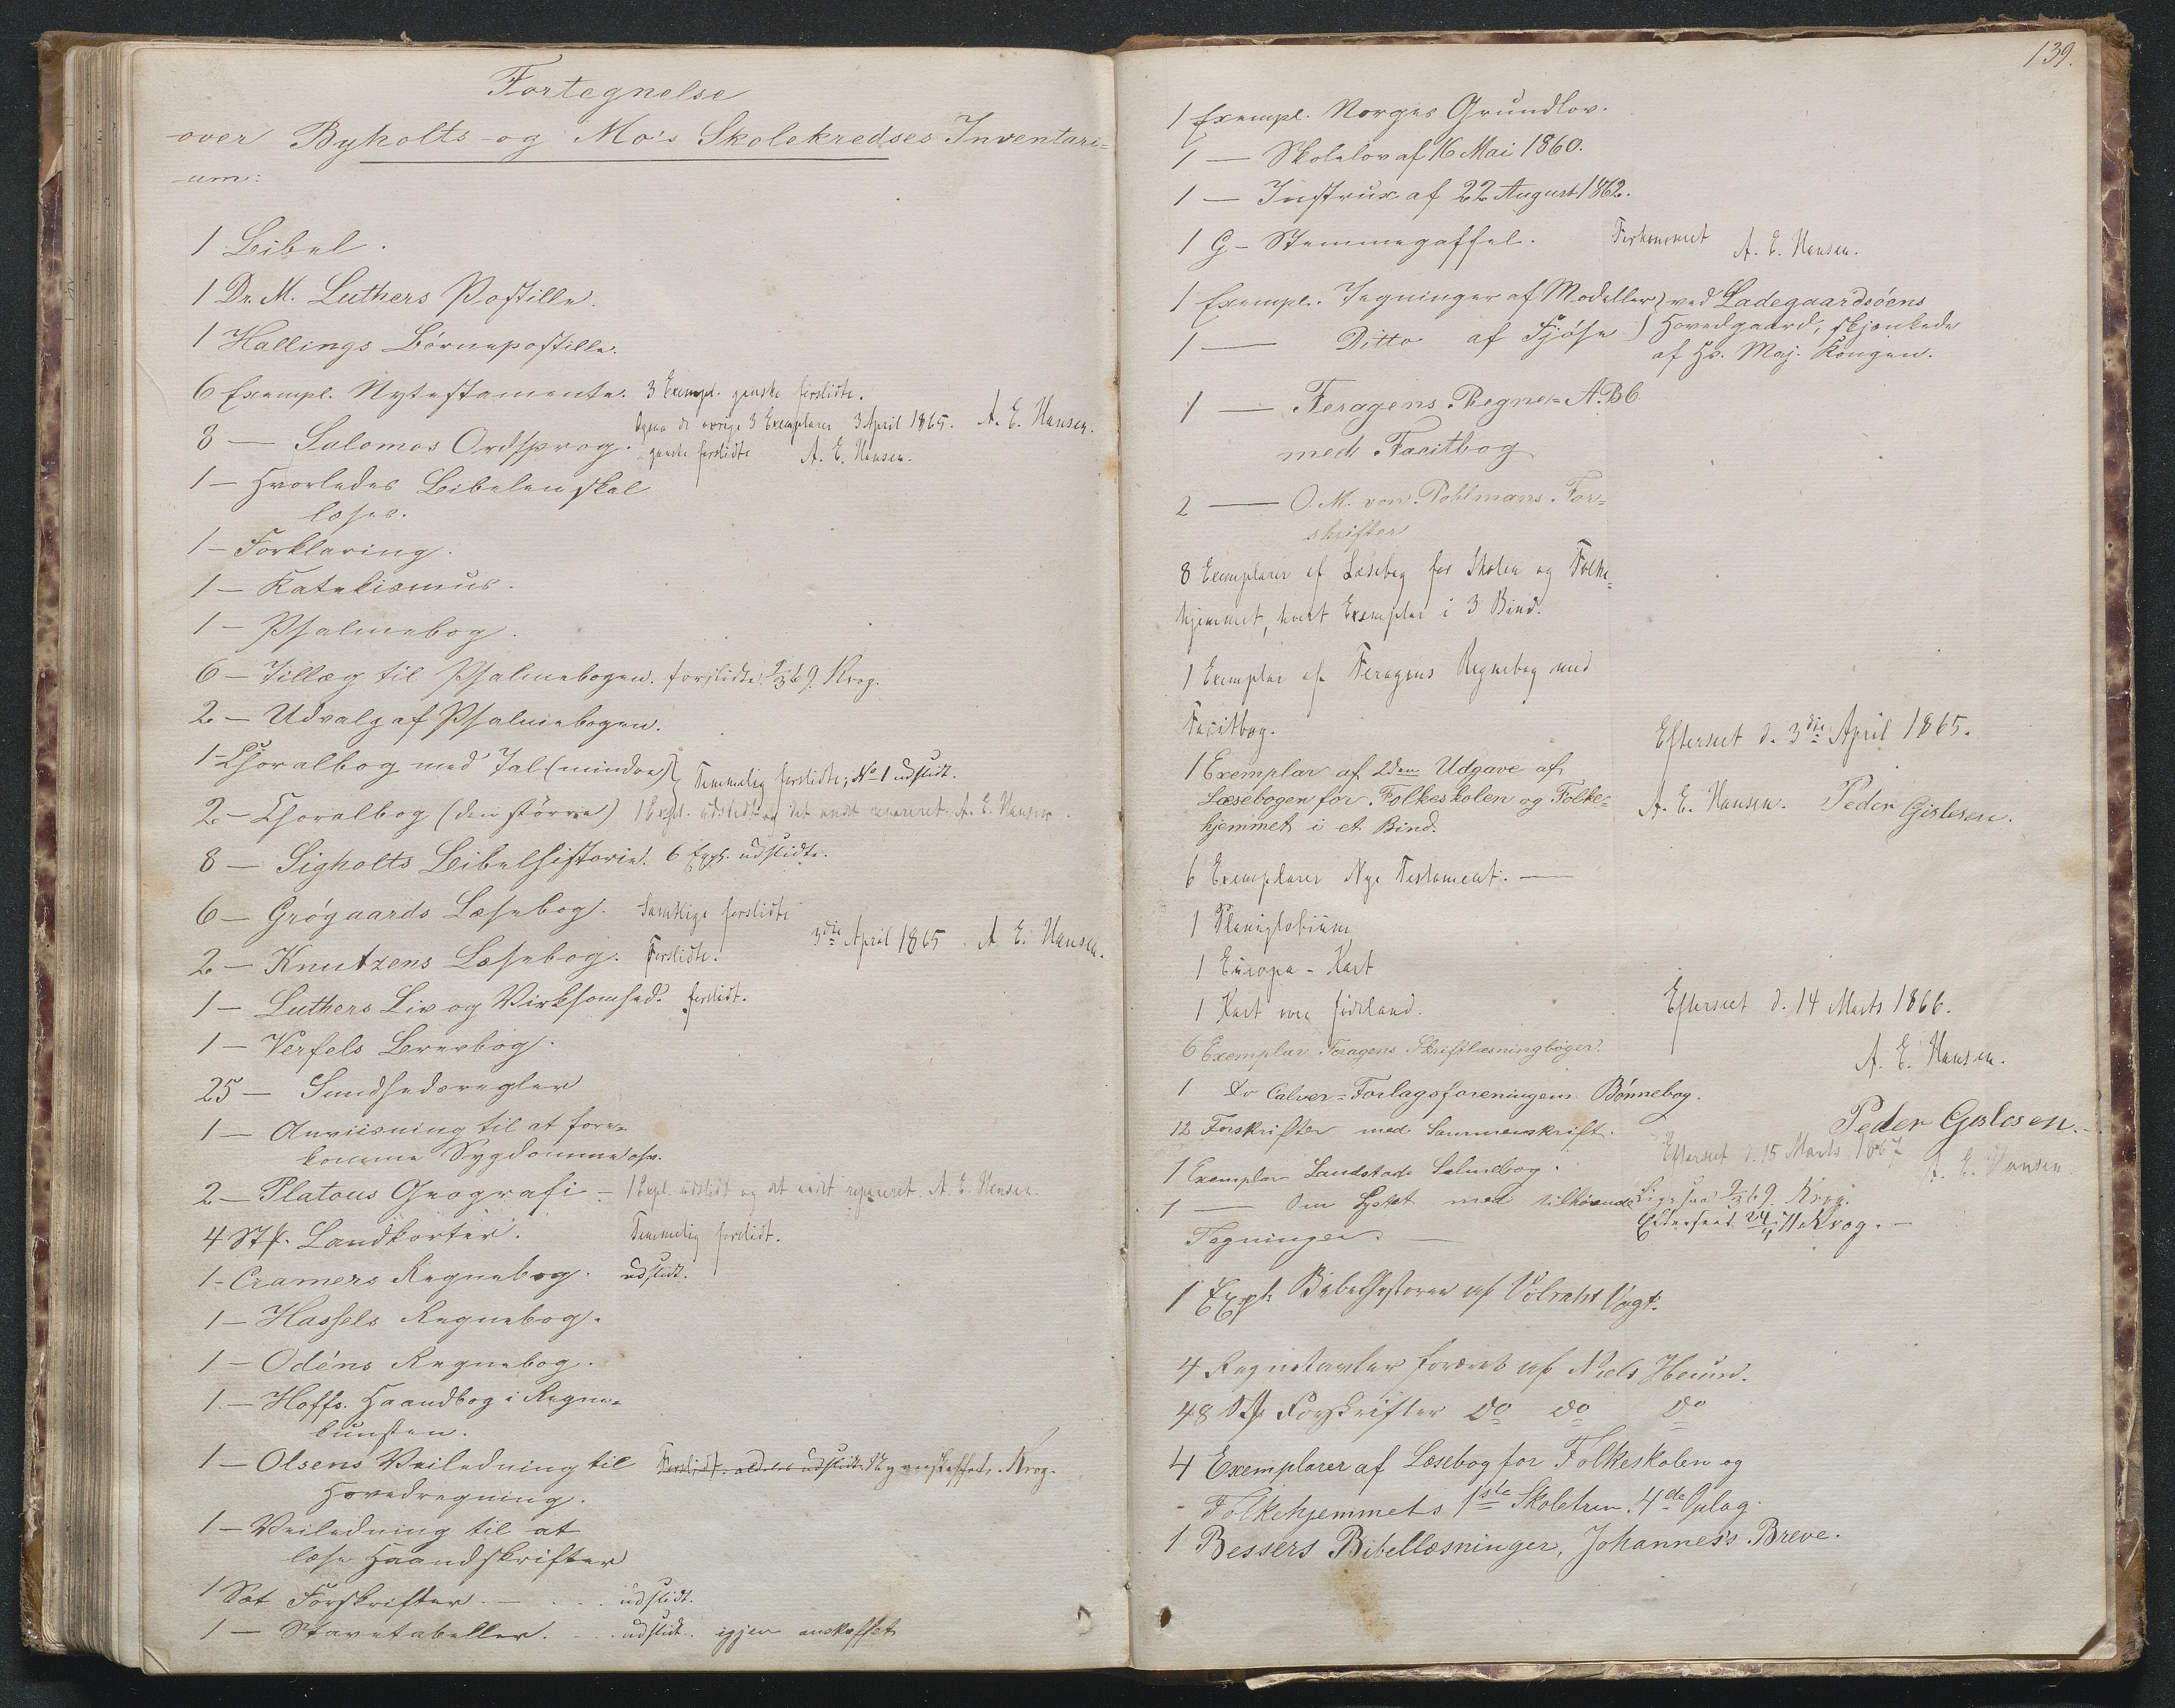 Fortegnelse
over Byholts og Mo's Skolekredses Inventari-
um:
1 Bibel.
1 Dr. M. Luthers Postille.
1 Hallings Børnepostille.
6 Exempl. Nytestamente. 3 Exempl. ganske forslidte.
8 — Salomos Ordsprog. de øvrige 3 Exemplarer 3 April 1865. A. E. Hansen.
ganske forslidte A. E. Hansen.
1 — Hvorledes Bibelen skal
læses.
1 — Forklaring.
1 — Katekismus.
1 — Psalmebog.
6 — Tillæg til Psalmebogen. forslidte. 69. Krog.
2 — Udvalg af Psalmebogen.
1 — Choralbog med Tal (mindre) Temmelig forslidte; No 1 udslidt.
2 — Choralbog (den større) 1 Expl. udslidt og det andet repareret. A. E. Hansen.
8 — Sigholts Bibelhistorie. 6 Expl. udslidte.
6 — Grøgaards Læsebog. Samtlige forslidte
2 — Knutzens Læsebog. Forslidte. 3die April 1865. A. E. Hansen.
1 — Luthers Liv og Virksomhed. forslidt.
1 — Verfels Brevbog.
25 — Sundhedsregler
1 — Anviisning til at fore-
komme Sygdomme osv.
2 — Platous Geografi — 1 Expl. udslidt og det andet repareret. A. E. Hansen.
4 Stk. Landkorter. Temmelig forslidt.
1 - Cramers Regnebog. udslidt.
1 — Hassels Regnebog.
1 — Odéns Regnebog.
1 — Hoffs. Haandbog i Regne-
kunsten.
1 — Olsens Veiledning til Forslidt. aldeles udslidt. Ny anskaffet. Krog.
Hovedregning.
1 — Veiledning til at
læse Haandskrifter
1 Sæt Forskrifter. — . . . udslidt.
1 — Stavetabeller. . . . udslidt. igjen anskaffet
139.
1 Exempl. Norges Grundlov.
1 — Skolelov af 16 Mai 1860.
1 — Instrux af 22 August 1862.
1 G - Stemmegaffel. Forkommet A. E. Hansen.
1 Exempl. Tegninger af Modeller) ved Ladegaardsøens
1 — Ditto af Fjøse) Hovedgaard, skjænkede
af Hs. Maj. Kongen.
1 — Feragens Regne-A.B.C
med Facitbog
2 — O. M. von Pohlmans For-
skrifter
8 Exemplarer af Læsebog for Skolen og Folke-
hjemmet, hvert Exemplar i 3 Bind.
1 Exemplar af Feragens Regnebog med
Facitbog.
Efterseet d. 3die April 1865.
1 Exemplar af 2den Udgave af
Læsebogen for Folkeskolen og Folke-
A. E. Hansen. Peder Gislesen.
hjemmet i et Bind.
6 Exemplarer Nye Testament. —
1 Planiglobium
1 Europa - Kart
1 Kart over Jødeland.
Efterseet d. 14 Marts 1866.
6 Exemplar Feragens Skriftlæsningbøger.
A. E. Hansen.
1 do Calver-Forlagsforeningens Bønnebog.
12 Forskrifter med Sammenskrift.
Peder Gislesen.
1 Exemplar Landstads Salmebog.
Efterseet d. 15 Marts 1867 A. E. Hansen
1 — Om Lyset med tilhørende
Tegninger. —
Ligesaa 69 Krog.
Efterseet 24 71 Krog. —
1 Expl. Bibelhistorie af Volraht Vogt.
4 Regnetavler foræret af Niels Heuum.
48 Stk Forskrifter do do do
4 Exemplarer af Læsebog for Folkeskolen og
Folkehjemmets 1ste Skoletrin. 4de Oplag.
1 Bessers Bibellæsninger, Johannes's Breve.